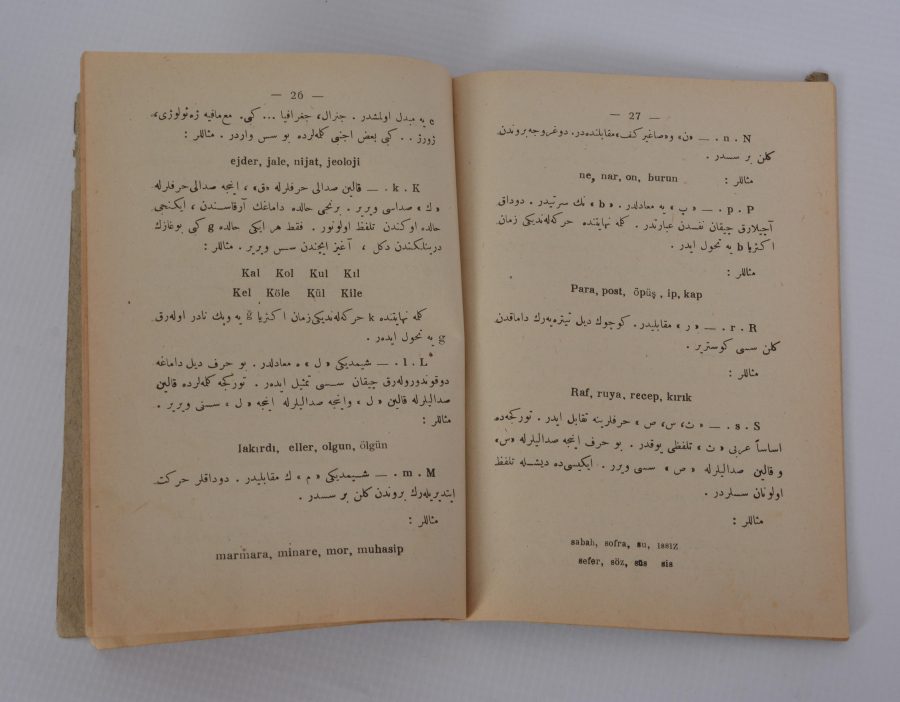 — 26 —
c یه مبدل اولمشدر. جنرال، جغرافیا ... کبی. مع مافیه ژه ئولوژی،
ژورژ .. کبی بعض اجنبی کله لرده بو سس واردر. مثاللر :
ejder, jale, nijat, jeoloji
k . K — قالین صدالی حرفلرله «ق»، اینجه صدالی حرفلرله
«ك» صداسی ویریر. برنجی حالده داماغك آرقاسندن، ایکنجی
حالده اوکندن تلفظ اولونور. فقط هر ایکی حالده g کبی بوغازك
درینلکندن دکل، آغیز ایچندن سس ویریر. مثاللر :
Kal Kol Kul Kıl
Kel Köle Kül Kile
کله نهایتنده k حرکه لندیکی زمان اکثریا ğ یه وپك نادر اوله رق
g یه تحول ایده ر.
l . L — شیمدیکی «ل» ه معادلدر. بو حرف دیل داماغه
دوقوندوروله رق چیقان سسی تمثیل ایده ر. تورکجه کله لرده قالین
صدالیلرله قالین «ل» واینجه صدالیلرله اینجه «ل» سسنی ویریر.
مثاللر :
lakırdı, eller, olgun, ölgün
m . M — شیمدیکی «م» ك مقابلیدر. دوداقلر حرکت
ایتدیریله رك بروندن کلن بر سسدر.
مثاللر :
marmara, minare, mor, muhasip
— 27 —
n . N — «ن» و «صاغیر کف» مقابلنده در. دوغروجه بروندن
کلن بر سسدر.
مثاللر :
ne, nar, on, burun
p . P — «پ» یه معادلدر. «b» نك سرتیدر. دوداق
آچیلارق چیقان نفسدن عبارتدر. کله نهایتنده حرکه لندیکی زمان
اکثریا b یه تحول ایدر.
مثاللر :
Para, post, öpüş, ip, kap
r . R — «ر» مقابلیدر. کوچوك دیل تیتره یه رك داماقدن
کلن سسی کوستریر.
مثاللر :
Raf, ruya, recep, kırık
s . S — «ث، س، ص» حرفلرینه تقابل ایدر. تورکجه ده
اساساً عربی «ث» تلفظی یوقدر. بو حرف اینجه صدالیلرله «س»
و قالین صدالیلرله «ص» سسی ویرر. ایکیسی ده دیشله تلفظ
اولونان سسلردر.
مثاللر :
sabah, sofra, su, ıssız
sefer, söz, süs sis